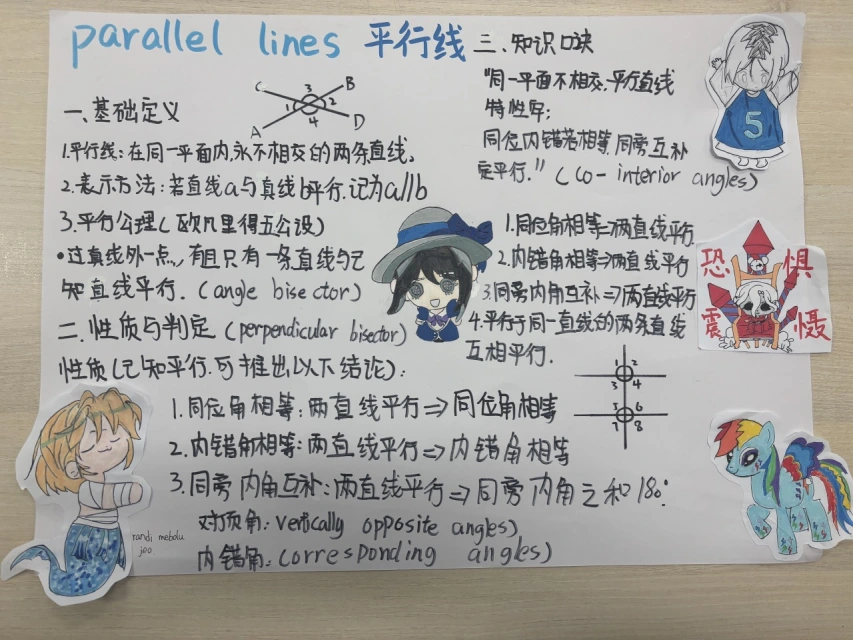 parallel lines 平行线
一、基础定义
C 3 B
1 2
A 4 D
1.平行线:在同一平面内,永不相交的两条直线。
2.表示方法:若直线a与直线b平行.记为a//b
3.平行公理(欧几里得五公设)
•过直线外一点,有且只有一条直线与已
知直线平行.(angle bisector)
二.性质与判定(perpendicular bisector)
性质(已知平行.可推出以下结论):
1.同位角相等:两直线平行⇒同位角相等
2.内错角相等:两直线平行⇒内错角相等
3.同旁内角互补:两直线平行⇒同旁内角之和180°.
对顶角:vertically opposite angles)
内错角:(corresponding angles)
三.知识口诀
"同一平面不相交,平行直线
特性牢;
同位内错若相等.同旁互补
定平行."(co-interior angles)
1.同位角相等⇒两直线平行
2.内错角相等⇒两直线平行
3.同旁内角互补⇒两直线平行
4.平行于同一直线的两条直线
互相平行.
1 2
3 4
5 6
7 8
5
恐惧
震慑